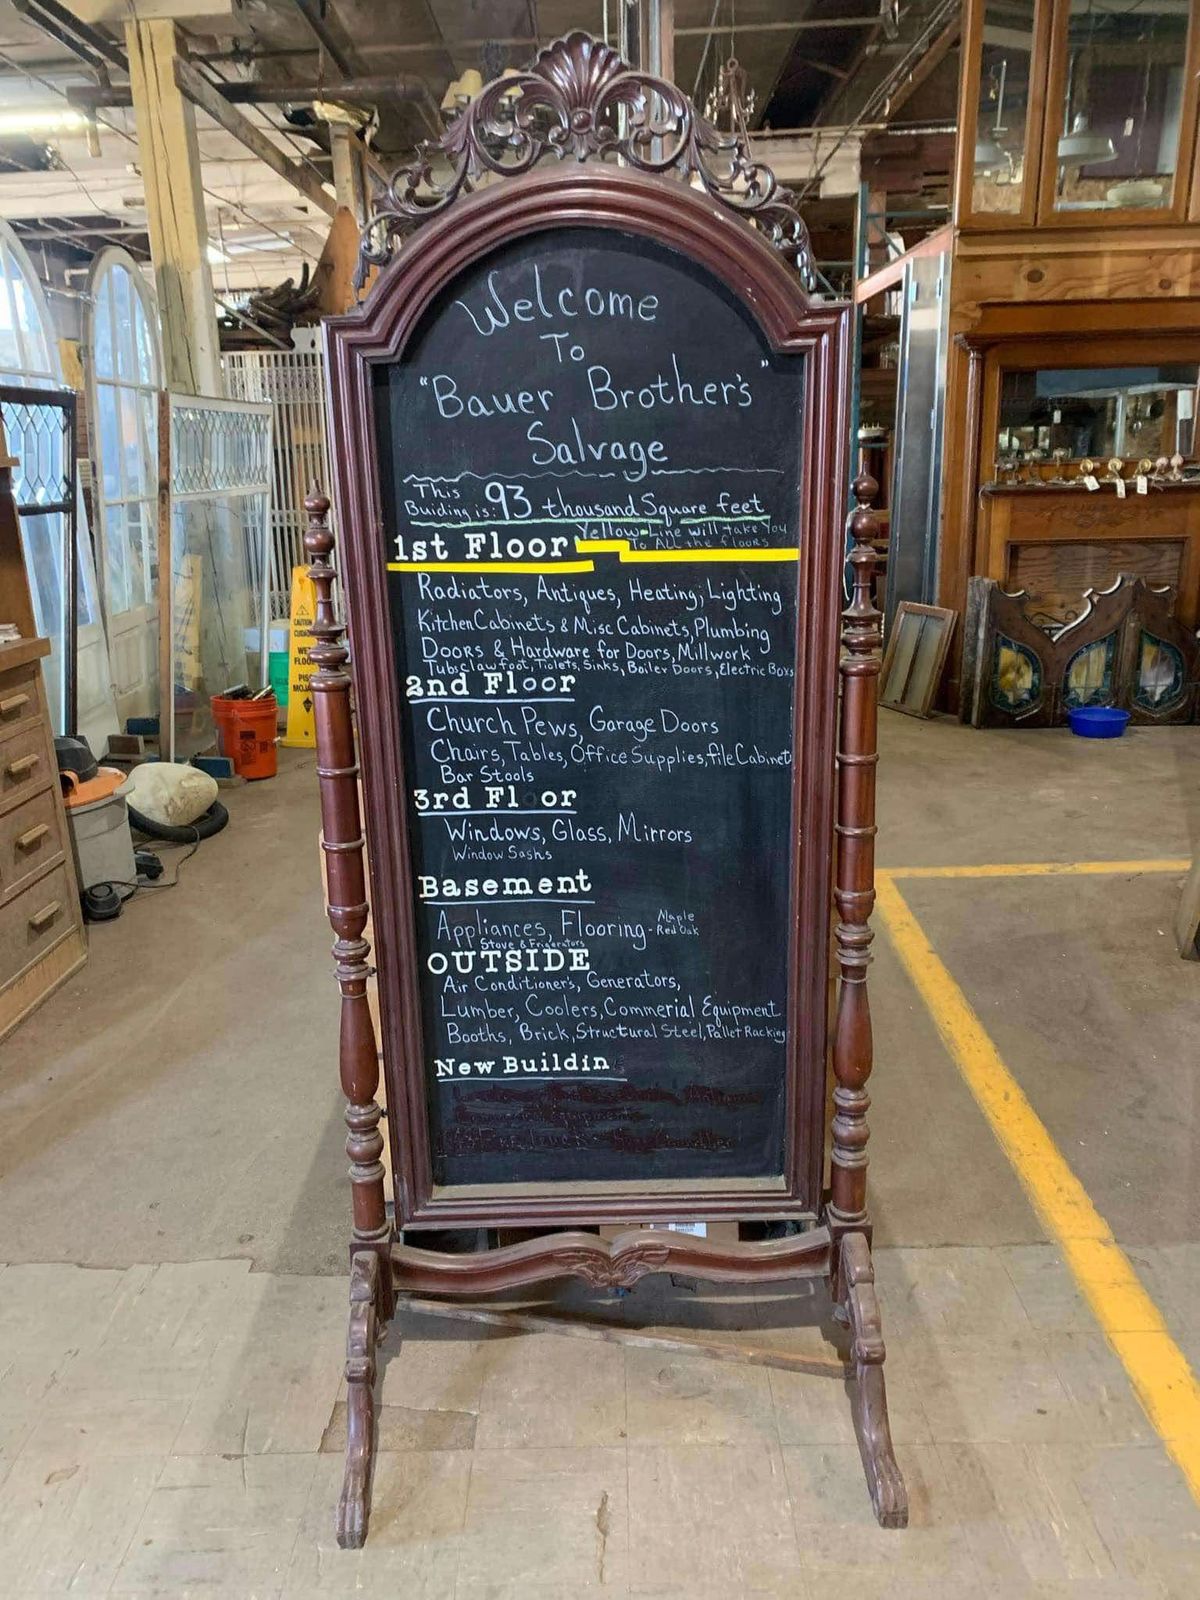 Welcome
To
"Bauer Brother's"
Salvage
This
Buiding is: 93 thousand Square feet
Yellow-Line will take You
To All the floors
1st Floor
Radiators, Antiques, Heating, Lighting
Kitchen Cabinets & Misc Cabinets, Plumbing
Doors & Hardware for Doors, Millwork
Tubs clawfoot, Tiolets, Sinks, Boiler Doors, Electric Boxs
2nd Floor
Church Pews, Garage Doors
Chairs, Tables, Office Supplies, file Cabinet
Bar Stools
3rd Fl or
Windows, Glass, Mirrors
Window Sashs
Basement
Appliances, Flooring - Maple
Red Oak
Stove & Frigerators
OUTSIDE
Air Conditioner's, Generators,
Lumber, Coolers, Commerial Equipment
Booths, Brick, Structural Steel, Pallet Racking
New Buildin
CAUTION
WET
FLOOR
PISO